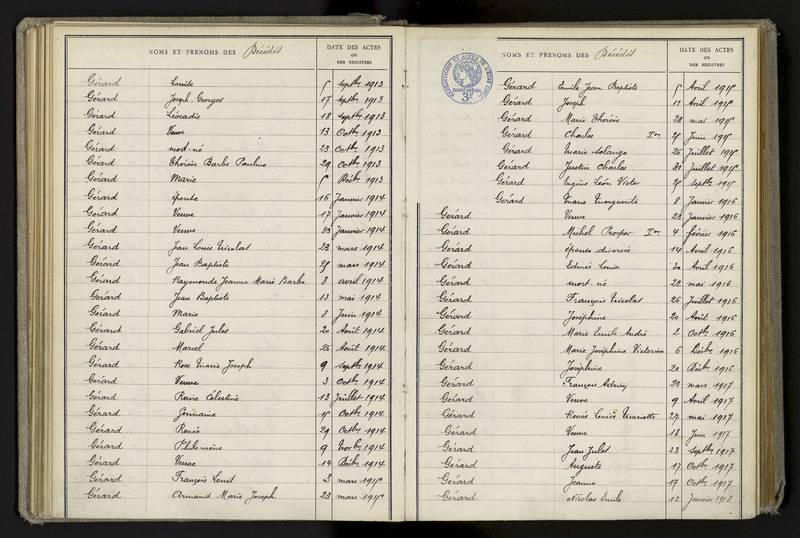 NOMS ET PRÉNOMS DES Décédés
DATE DES ACTES
OU
DES REGISTRES
Gérard Louise 5 Septbre 1913
Gérard Joseph Georges 17 Septbre 1913
Gérard Léocadie 18 Septbre 1913
Gérard Veuve 13 Octbre 1913
Gérard mort-né 23 Octbre 1913
Gérard Thérèse Barbe Pauline 29 Octbre 1913
Gérard Marie 5 Décbre 1913
Gérard épouse 16 Janvier 1914
Gérard Veuve 17 Janvier 1914
Gérard Veuve 23 Janvier 1914
Gérard Jean Louis Nicolas 23 mars 1914
Gérard Jean Baptiste 25 mars 1914
Gérard Raymonde Jeanne Marie Barbe 8 avril 1914
Gérard Jean Baptiste 13 mai 1914
Gérard Marie 8 Juin 1914
Gérard Gabriel Jules 20 Août 1914
Gérard Marcel 25 Août 1914
Gérard Rose Marie Joseph 9 Septbre 1914
Gérard Veuve 3 Octbre 1914
Gérard Reine Célestine 13 Juillet 1914
Gérard Germaine 15 Octbre 1914
Gérard Renée 29 Octbre 1914
Gérard Philomène 9 Novbre 1914
Gérard Veuve 14 Décbre 1914
Gérard François Louis 3 mars 1915
Gérard Armand Marie Joseph 23 mars 1915
NOMS ET PRÉNOMS DES Décédés
DATE DES ACTES
OU
DES REGISTRES
3F
Gérard Emile Jean Baptiste 5 Avril 1915
Gérard Joseph 12 Avril 1915
Gérard Marie Thérèse 28 mai 1915
Gérard Charles Ton 25 Juin 1915
Gérard Marie Solange 25 Juillet 1915
Gérard Justin Charles 31 Juillet 1915
Gérard Eugène Léon Victor 25 Septbre 1915
Gérard Marie Marguerite 8 Janvier 1916
Gérard Veuve 23 Janvier 1916
Gérard Michel Prosper Ton 4 février 1916
Gérard épouse divorcée 14 Avril 1916
Gérard Edmée Louise 30 Avril 1916
Gérard mort-né 22 mai 1916
Gérard François Nicolas 26 Juillet 1916
Gérard Joséphine 20 Août 1916
Gérard Marie Emile André 2 Octbre 1916
Gérard Marie Joséphine Victorine 6 Décbre 1916
Gérard Joséphine 20 Décbre 1916
Gérard François 20 mars 1917
Gérard Veuve 9 Avril 1917
Gérard Renée Louise Mariette 27 mai 1917
Gérard Veuve 18 Juin 1917
Gérard Jean Jules 23 Septbre 1917
Gérard Auguste 17 Octbre 1917
Gérard Jeanne 17 Octbre 1917
Gérard Nicolas Emile 12 Janvier 1918